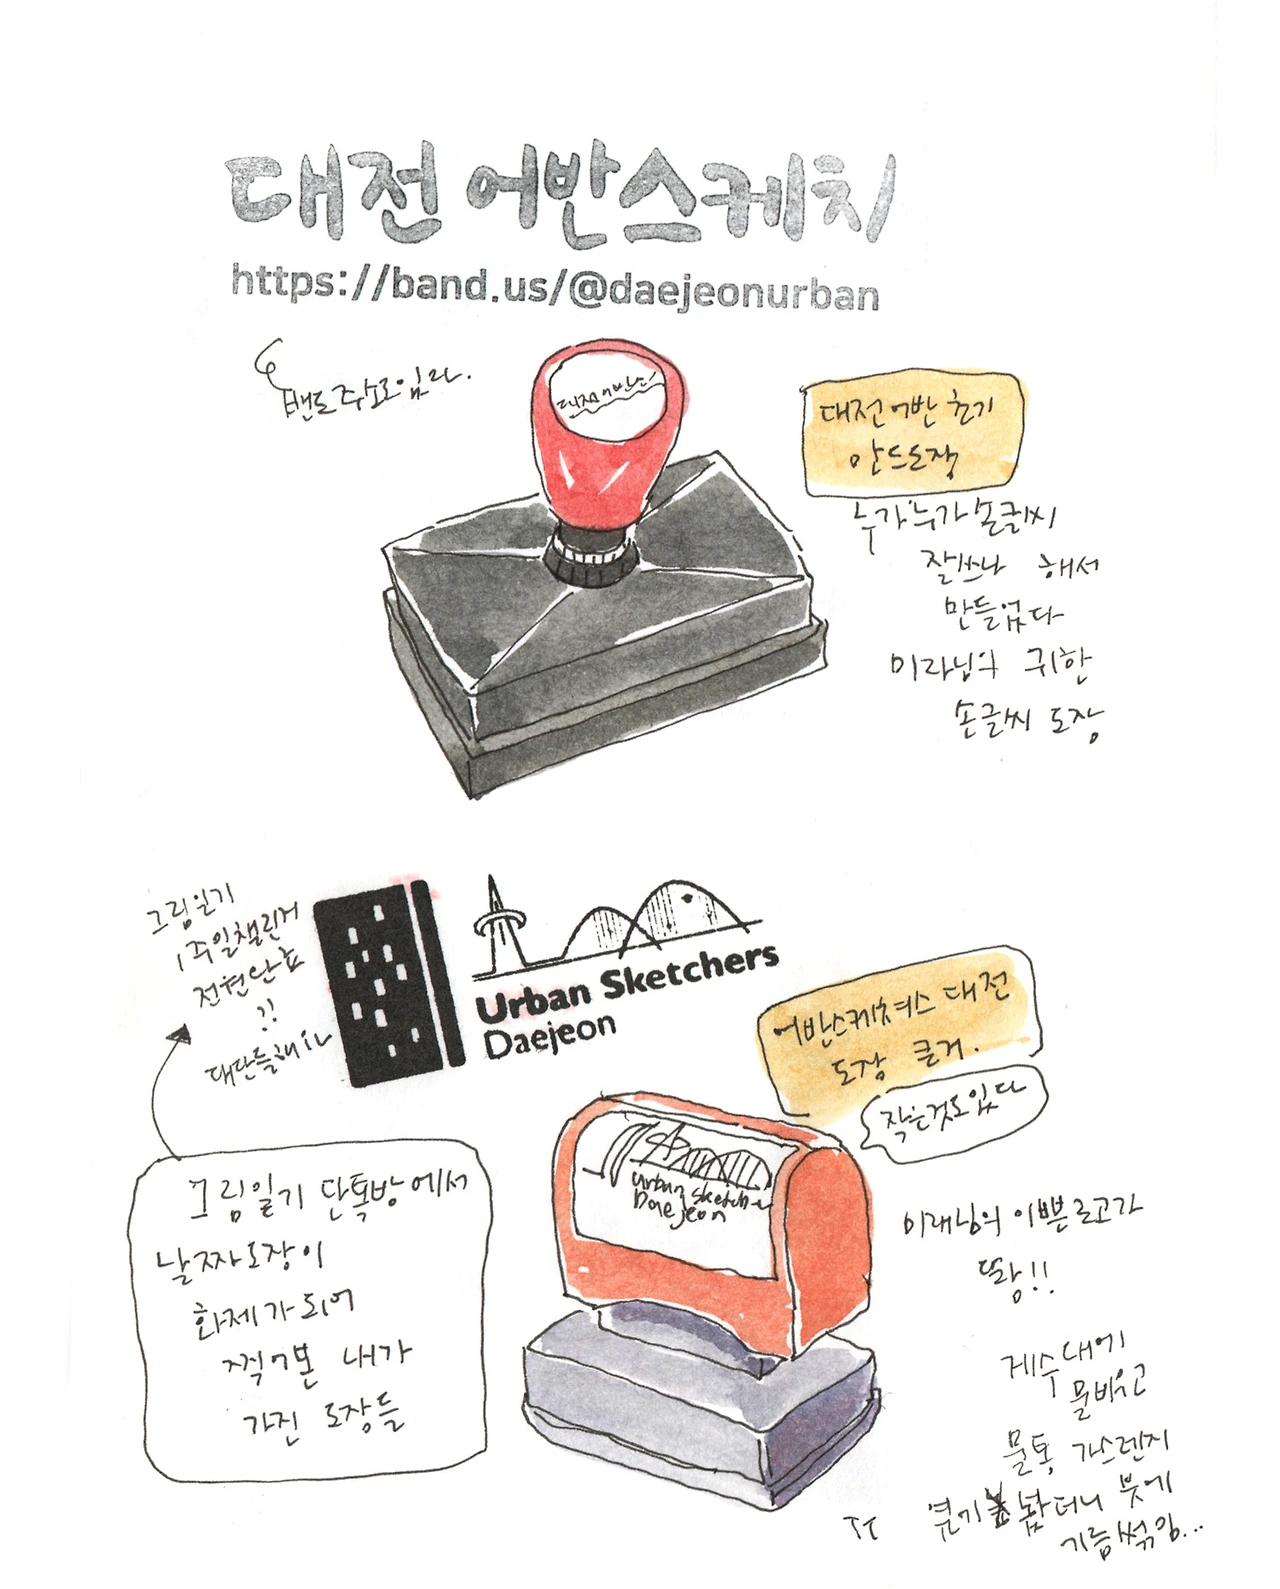 대전 어반스케치
https://band.us/@daejeonurban
밴드주소임다.
대전어반
대전어반 초기
만든도장
누가누가손글씨
잘쓰나 해서
만들었다
미라님의 귀한
손글씨 도장
그림일기
1주일챌린저
전원단호
!!
대단들해!!
Urban Sketchers
Daejeon
어반스케쳐스 대전
도장 큰거.
작은것도있다
urban sketche
Daejeon
그림일기 단톡방에서
날짜도장이
화제가되어
찍어본 내가
가진 도장들
미래님의 이쁜로고가
땋!!
게수대에
물버리고
물통 가스렌지
옆기 놨더니 붓에
기름썪임...
TT